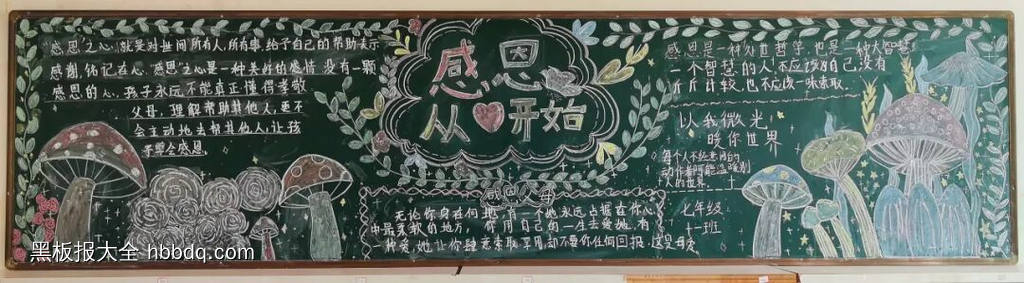 感恩之心,就是对世间所有人,所有事给予自己的帮助表示
感谢,铭记在心,感恩之心是一种美好的感情,没有一颗
感恩的心,孩子永远不能真正懂得孝敬
父母,理解帮助其他人,更不
会主动地去帮其他人,让孩
子学会感恩
感恩
从 开始
感恩父母
无论你身在何地,有一个她永远占据在你心
中最柔软的地方,你用自己的一生去爱她,有
一种爱,她让你肆意索取,享用,却不要你任何回报,这是母爱
感恩是一种处世哲学,也是一种大智慧
一个智慧的人,不应该为自己没有
斤斤计较,也不应该一味索取
以我微光
暖你世界
每个人不经意间的
动作都可能温暖别
人的世界
七年级
十一班
黑板报大全 hbbdq.com